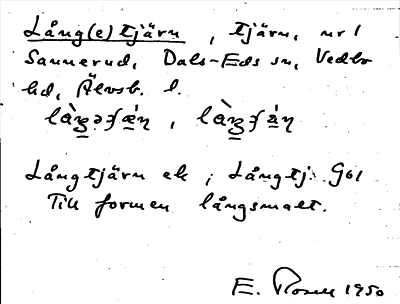 Lång(e)tjärn, tjärn, nr 1
Sannerud, Dals-Eds sn, Vedbo
hd, Älvsb. l.
Långtjärn ek; Långtj. G61
Till formen långsmalt.
E. Rosell 1950